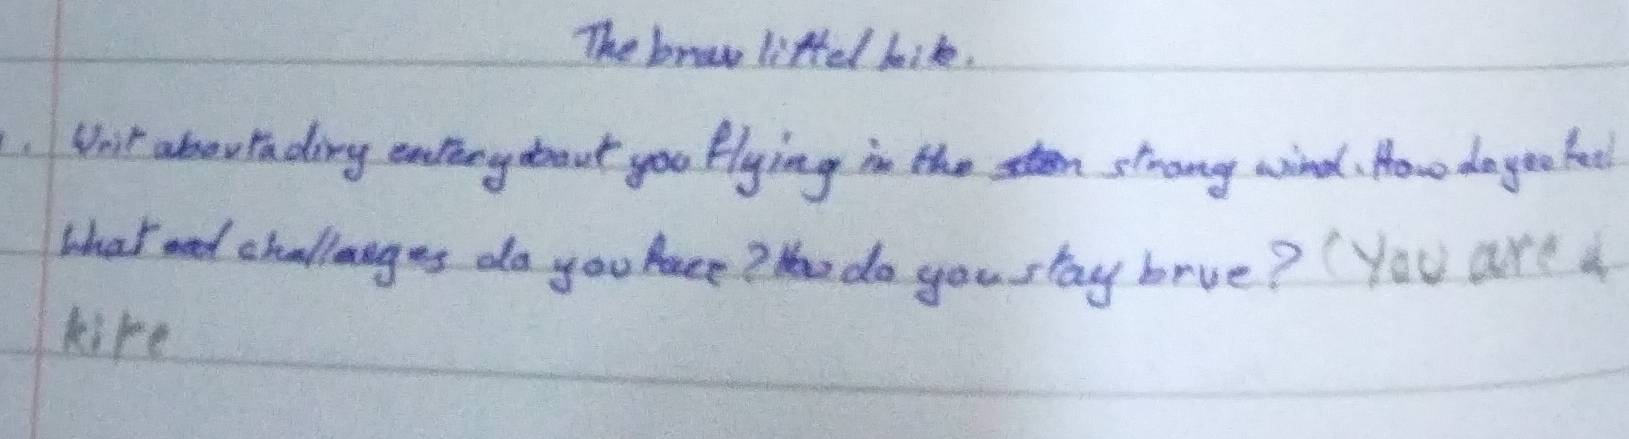 The brav littel kite.
1. Writ about a diry entery about you flying in the ston strong wind. How do you feel
What and challanges do you face? How do you stay brve? (You are a
kite